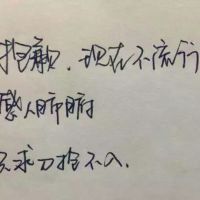 抱歉，现在不流行
感人肺腑
只求刀枪不入.